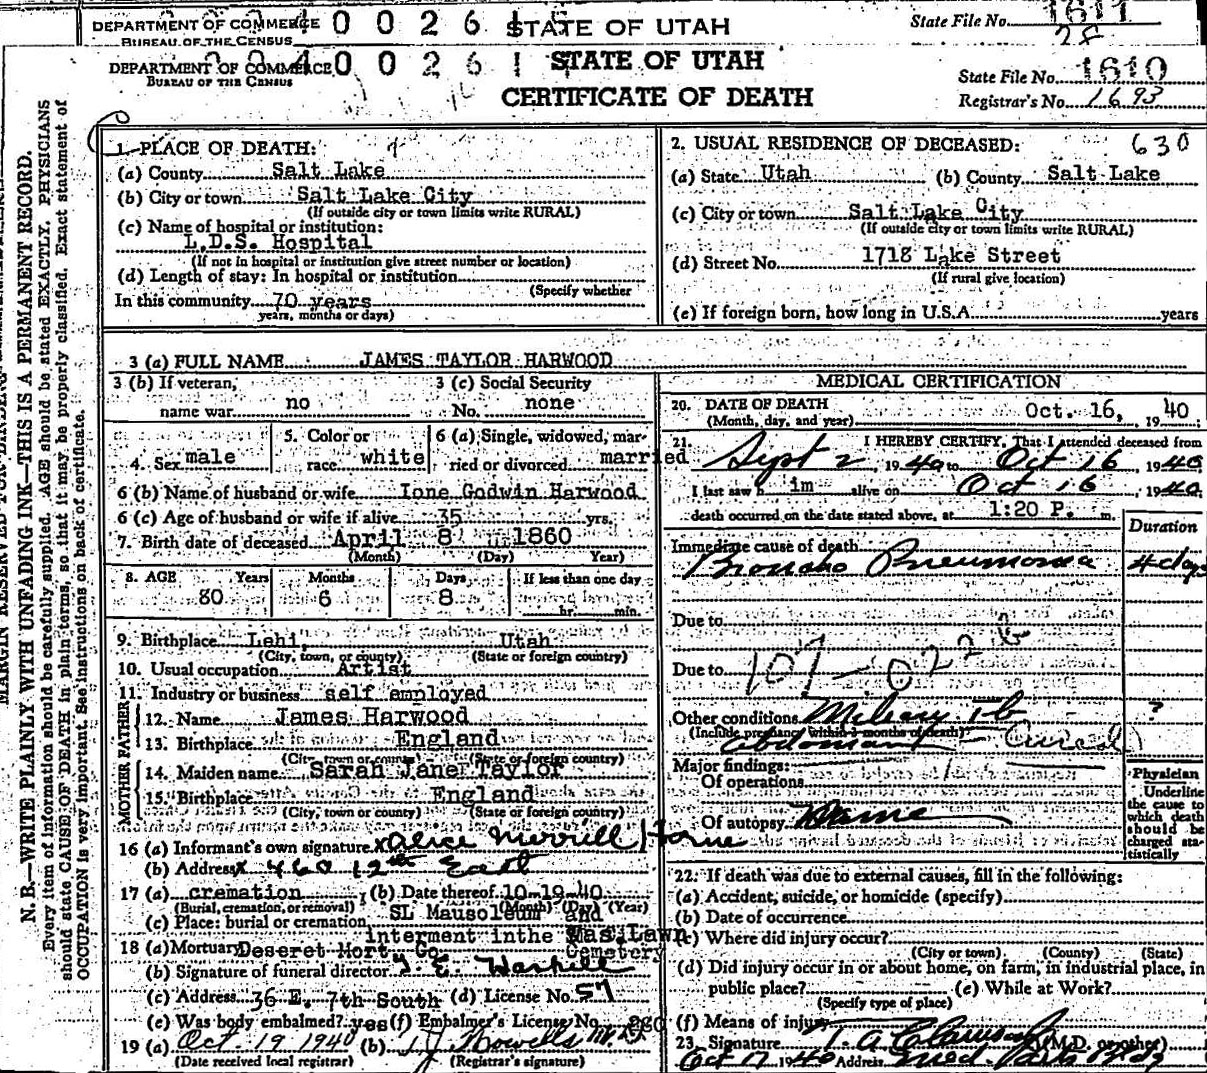 DEPARTMENT OF COMMERCE STATE OF UTAH State File No. 1611
BUREAU OF THE CENSUS
DEPARTMENT OF COMMERCE STATE OF UTAH State File No. 1610
BUREAU OF THE CENSUS CERTIFICATE OF DEATH Registrar's No. 1693
MARGIN RESERVED FOR BINDING
N. B.—WRITE PLAINLY WITH UNFADING INK—THIS IS A PERMANENT RECORD.
Every item of information should be carefully supplied. AGE should be stated EXACTLY. PHYSICIANS
should state CAUSE OF DEATH in plain terms, so that it may be properly classified. Exact statement of
OCCUPATION is very important. See instructions on back of certificate.
1. PLACE OF DEATH:
(a) County Salt Lake
(b) City or town Salt Lake City
(If outside city or town limits write RURAL)
(c) Name of hospital or institution:
L.D.S. Hospital
(If not in hospital or institution give street number or location)
(d) Length of stay: In hospital or institution
(Specify whether
In this community 70 years
years, months or days)
2. USUAL RESIDENCE OF DECEASED: 630
(a) State Utah (b) County Salt Lake
(c) City or town Salt Lake City
(If outside city or town limits write RURAL)
(d) Street No. 1718 Lake Street
(If rural give location)
(e) If foreign born, how long in U.S.A. years
3 (a) FULL NAME JAMES TAYLOR HARWOOD
3 (b) If veteran, name war no
3 (c) Social Security No. none
4. Sex male
5. Color or race white
6 (a) Single, widowed, married or divorced married
6 (b) Name of husband or wife Ione Godwin Harwood
6 (c) Age of husband or wife if alive 35 yrs.
7. Birth date of deceased April 8 1860
(Month) (Day) Year)
8. AGE Years Months Days If less than one day
80 6 8 hr. min.
9. Birthplace Lehi, Utah
(City, town, or county) (State or foreign country)
10. Usual occupation Artist
11. Industry or business self employed
FATHER
12. Name James Harwood
13. Birthplace England
(City, town or county) (State or foreign country)
MOTHER
14. Maiden name Sarah Jane Taylor
15. Birthplace England
(City, town or county) (State or foreign country)
16 (a) Informant's own signature x Alice Merrill Horne
(b) Address x 460 12th East
17 (a) cremation (b) Date thereof 10-19-40
(Burial, cremation, or removal) (Month) (Day) (Year)
(c) Place: burial or cremation SL Mausoleum and
interment inthe Was. Lawn
Cemetery
18 (a) Mortuary Deseret Mort. Co.
(b) Signature of funeral director
(c) Address 36 E. 7th South (d) License No. 57
(e) Was body embalmed? yes (f) Embalmer's License No.
19 (a) Oct. 19 1940 (b)
(Date received local registrar) (Registrar's signature)
MEDICAL CERTIFICATION
20. DATE OF DEATH Oct. 16, 1940
(Month, day, and year)
21. I HEREBY CERTIFY, That I attended deceased from
Sept 2, 1940 to Oct 16, 1940
I last saw h im alive on Oct 16, 1940
death occurred on the date stated above, at 1:20 P. m.
Duration
Immediate cause of death
Broncho Pneumonia 4 days
Due to
Due to 107 - 022
Other conditions Miliary Tb ?
(Include pregnancy within 3 months of death)
Major findings:
Of operations
Of autopsy
Physician
Underline
the cause to
which death
should be
charged sta-
tistically
22. If death was due to external causes, fill in the following:
(a) Accident, suicide, or homicide (specify)
(b) Date of occurrence
(c) Where did injury occur?
(City or town) (County) (State)
(d) Did injury occur in or about home, on farm, in industrial place, in
public place? (e) While at Work?
(Specify type of place)
(f) Means of injury
23. Signature (M.D. or other)
Oct 17 1940 Address